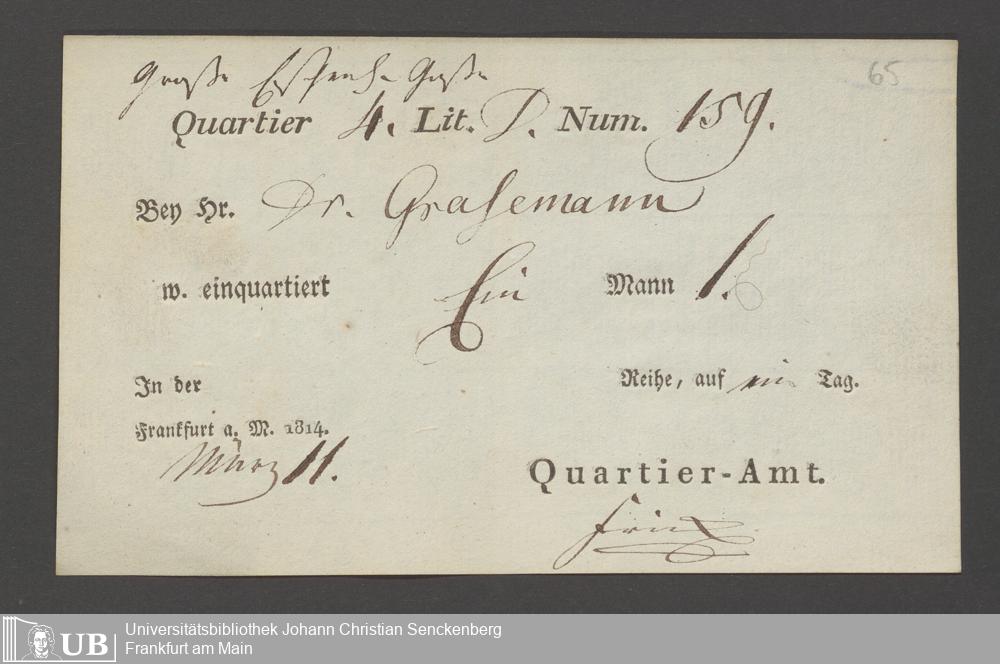 65
Große Eschenh. Gasse
Quartier 4. Lit. D. Num. 159.
Bey Hr. Dr. Grasemann
w. einquartiert Ein Mann 1.
In der Reihe, auf ein Tag.
Frankfurt a. M. 1814.
März 11.
Quartier-Amt.
UB Universitätsbibliothek Johann Christian Senckenberg
Frankfurt am Main